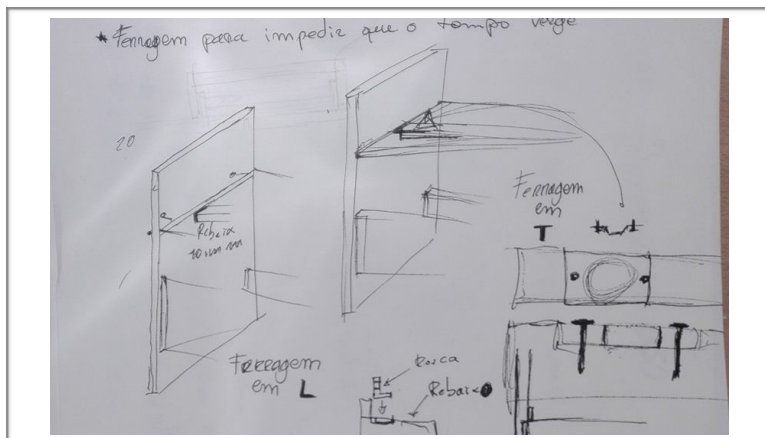 * Ferragem para impedir que o tampo verge
20
Rebaixo
10 mm
Ferragem
em
T
Ferragem
em L
Rosca
Rebaixo